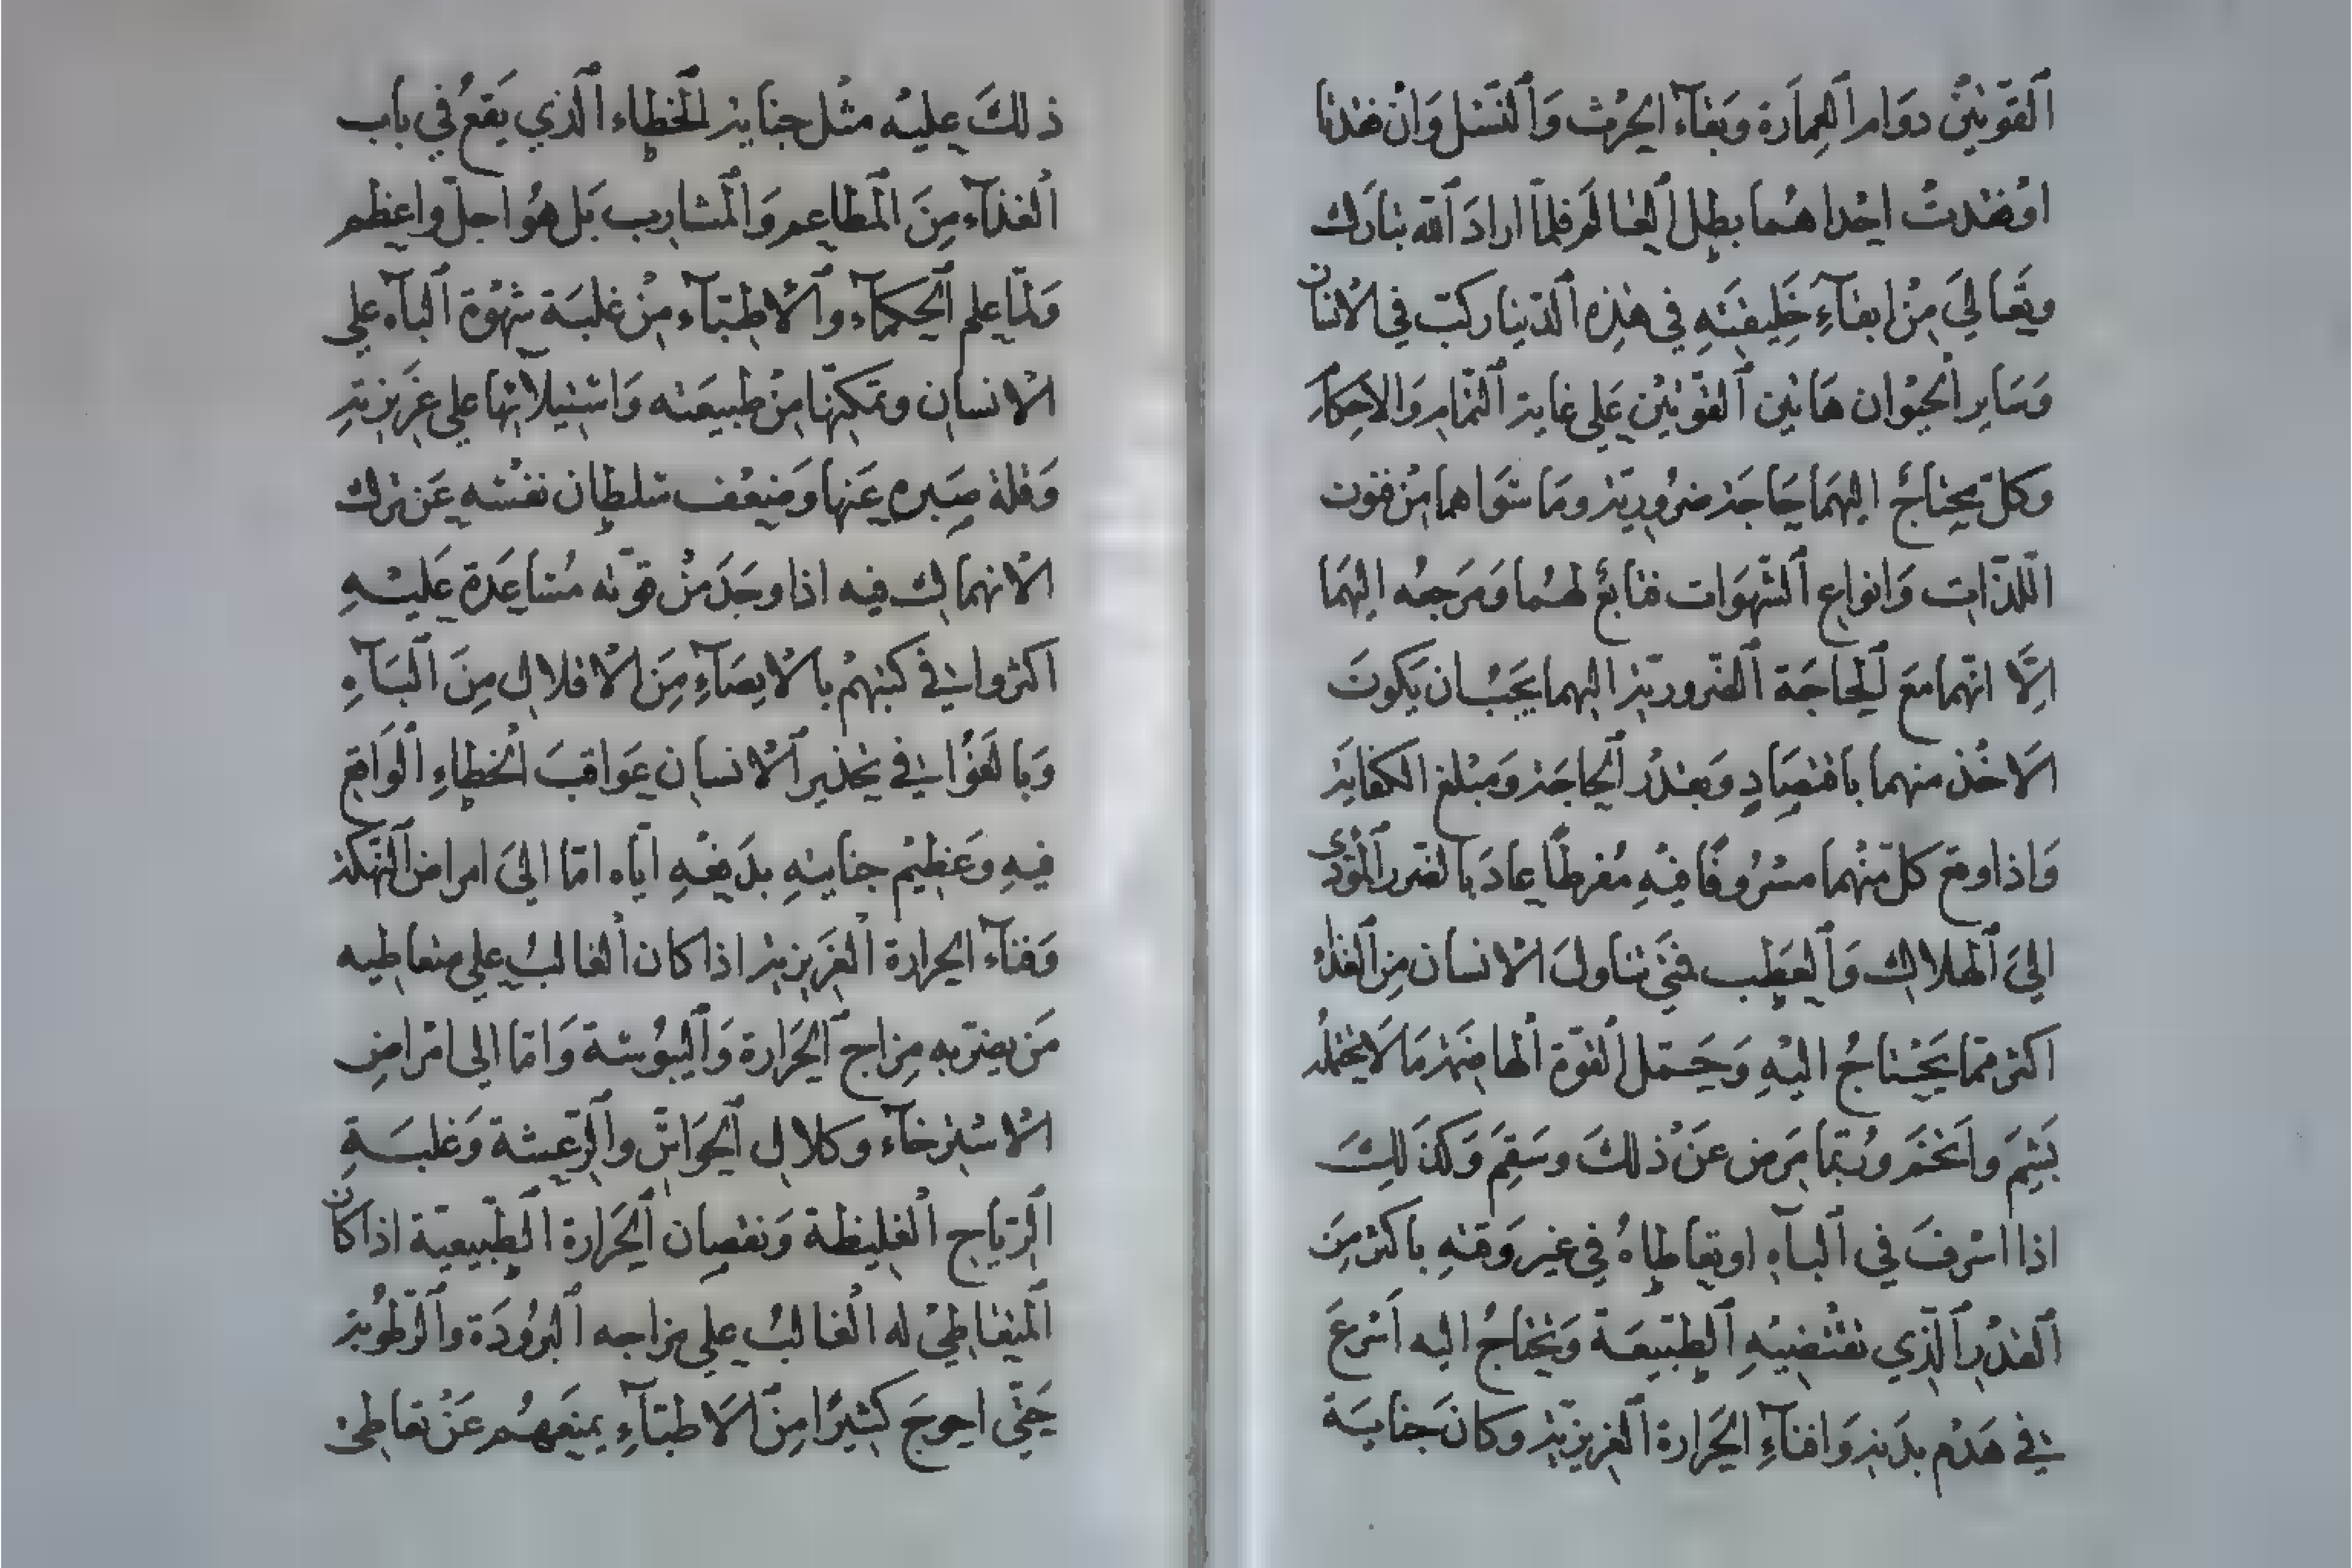 القوّتين دوام العمارة وبقاء الحرث والنّسل وان فقدتا
او فقدت احداهما بطل العالم فلما اراد الله تبارك
وتعالى من ابقاء خليقته في هذه الدّنيا ركّب في الانسان
وساير الحيوان هاتين القوّتين على غاية التمام والاحكام
وكلّ يحتاج اليهما حاجة ضرورية وما سواهما من فنون
اللذّات وانواع الشّهوات فتابع لهما ومرجعه اليهما
الّا انّهما مع الحاجة الضّروريّة اليهما يجب ان يكون
الاخذ منهما باقتصاد وبقدر الحاجة ومبلغ الكفاية
واذا وقع كلّ منهما مسروفًا فيه مفرطًا عاد بالضّرر المؤدّى
الى الهلاك والعطب فمتى تناول الانسان من الغذاء
اكثر ممّا يحتاج اليه وحمّل القوّة الهاضمة ما لا تحتمله
بشم واتخم وربّما مرض عن ذلك وسقم وكذلك
اذا اسرف في الباه او تعاطاه في غير وقته باكثر من
القدر الّذي تقتضيه الطّبيعة وتحتاج اليه اسرع
في هدم بدنه وافناء الحرارة الغريزيّة وكان جناية
ذلك عليه مثل جناية الخطاء الّذي يقع في باب
الغذاء من المطاعم والمشارب بل هو اجلّ واعظم
ولمّا علم الحكماء والاطبّاء من غلبة شهوة الباه على
الانسان وتمكّنها من طبيعته واستيلائها على غريزته
وقلة صبره عنها وضعف سلطان نفسه عن ترك
الانهماك فيه اذا وجد من قوّته مساعدة عليه
اكثروا في كتبهم بالايصاء من الاقلال من الباه
وبالغوا في تحذير الانسان عواقب الخطاء الواقع
فيه وعظيم جنايته بدفعه ايّاه امّا الى امراض النّهكة
وفناء الحرارة الغريزية اذا كان الغالب على متعاطيه
من يضرّ به مزاج الحرارة واليبوسة وامّا الى امراض
الاسترخاء وكلال الحواسّ والرّعشة وغلبة
الرّياح الغليظة ونقصان الحرارة الطّبيعيّة اذا كان
المتعاطي له الغالب على مزاجه البرودة والرّطوبة
حتّى احوج كثيرًا من الاطبّاء بمنعهم عن تعاطي